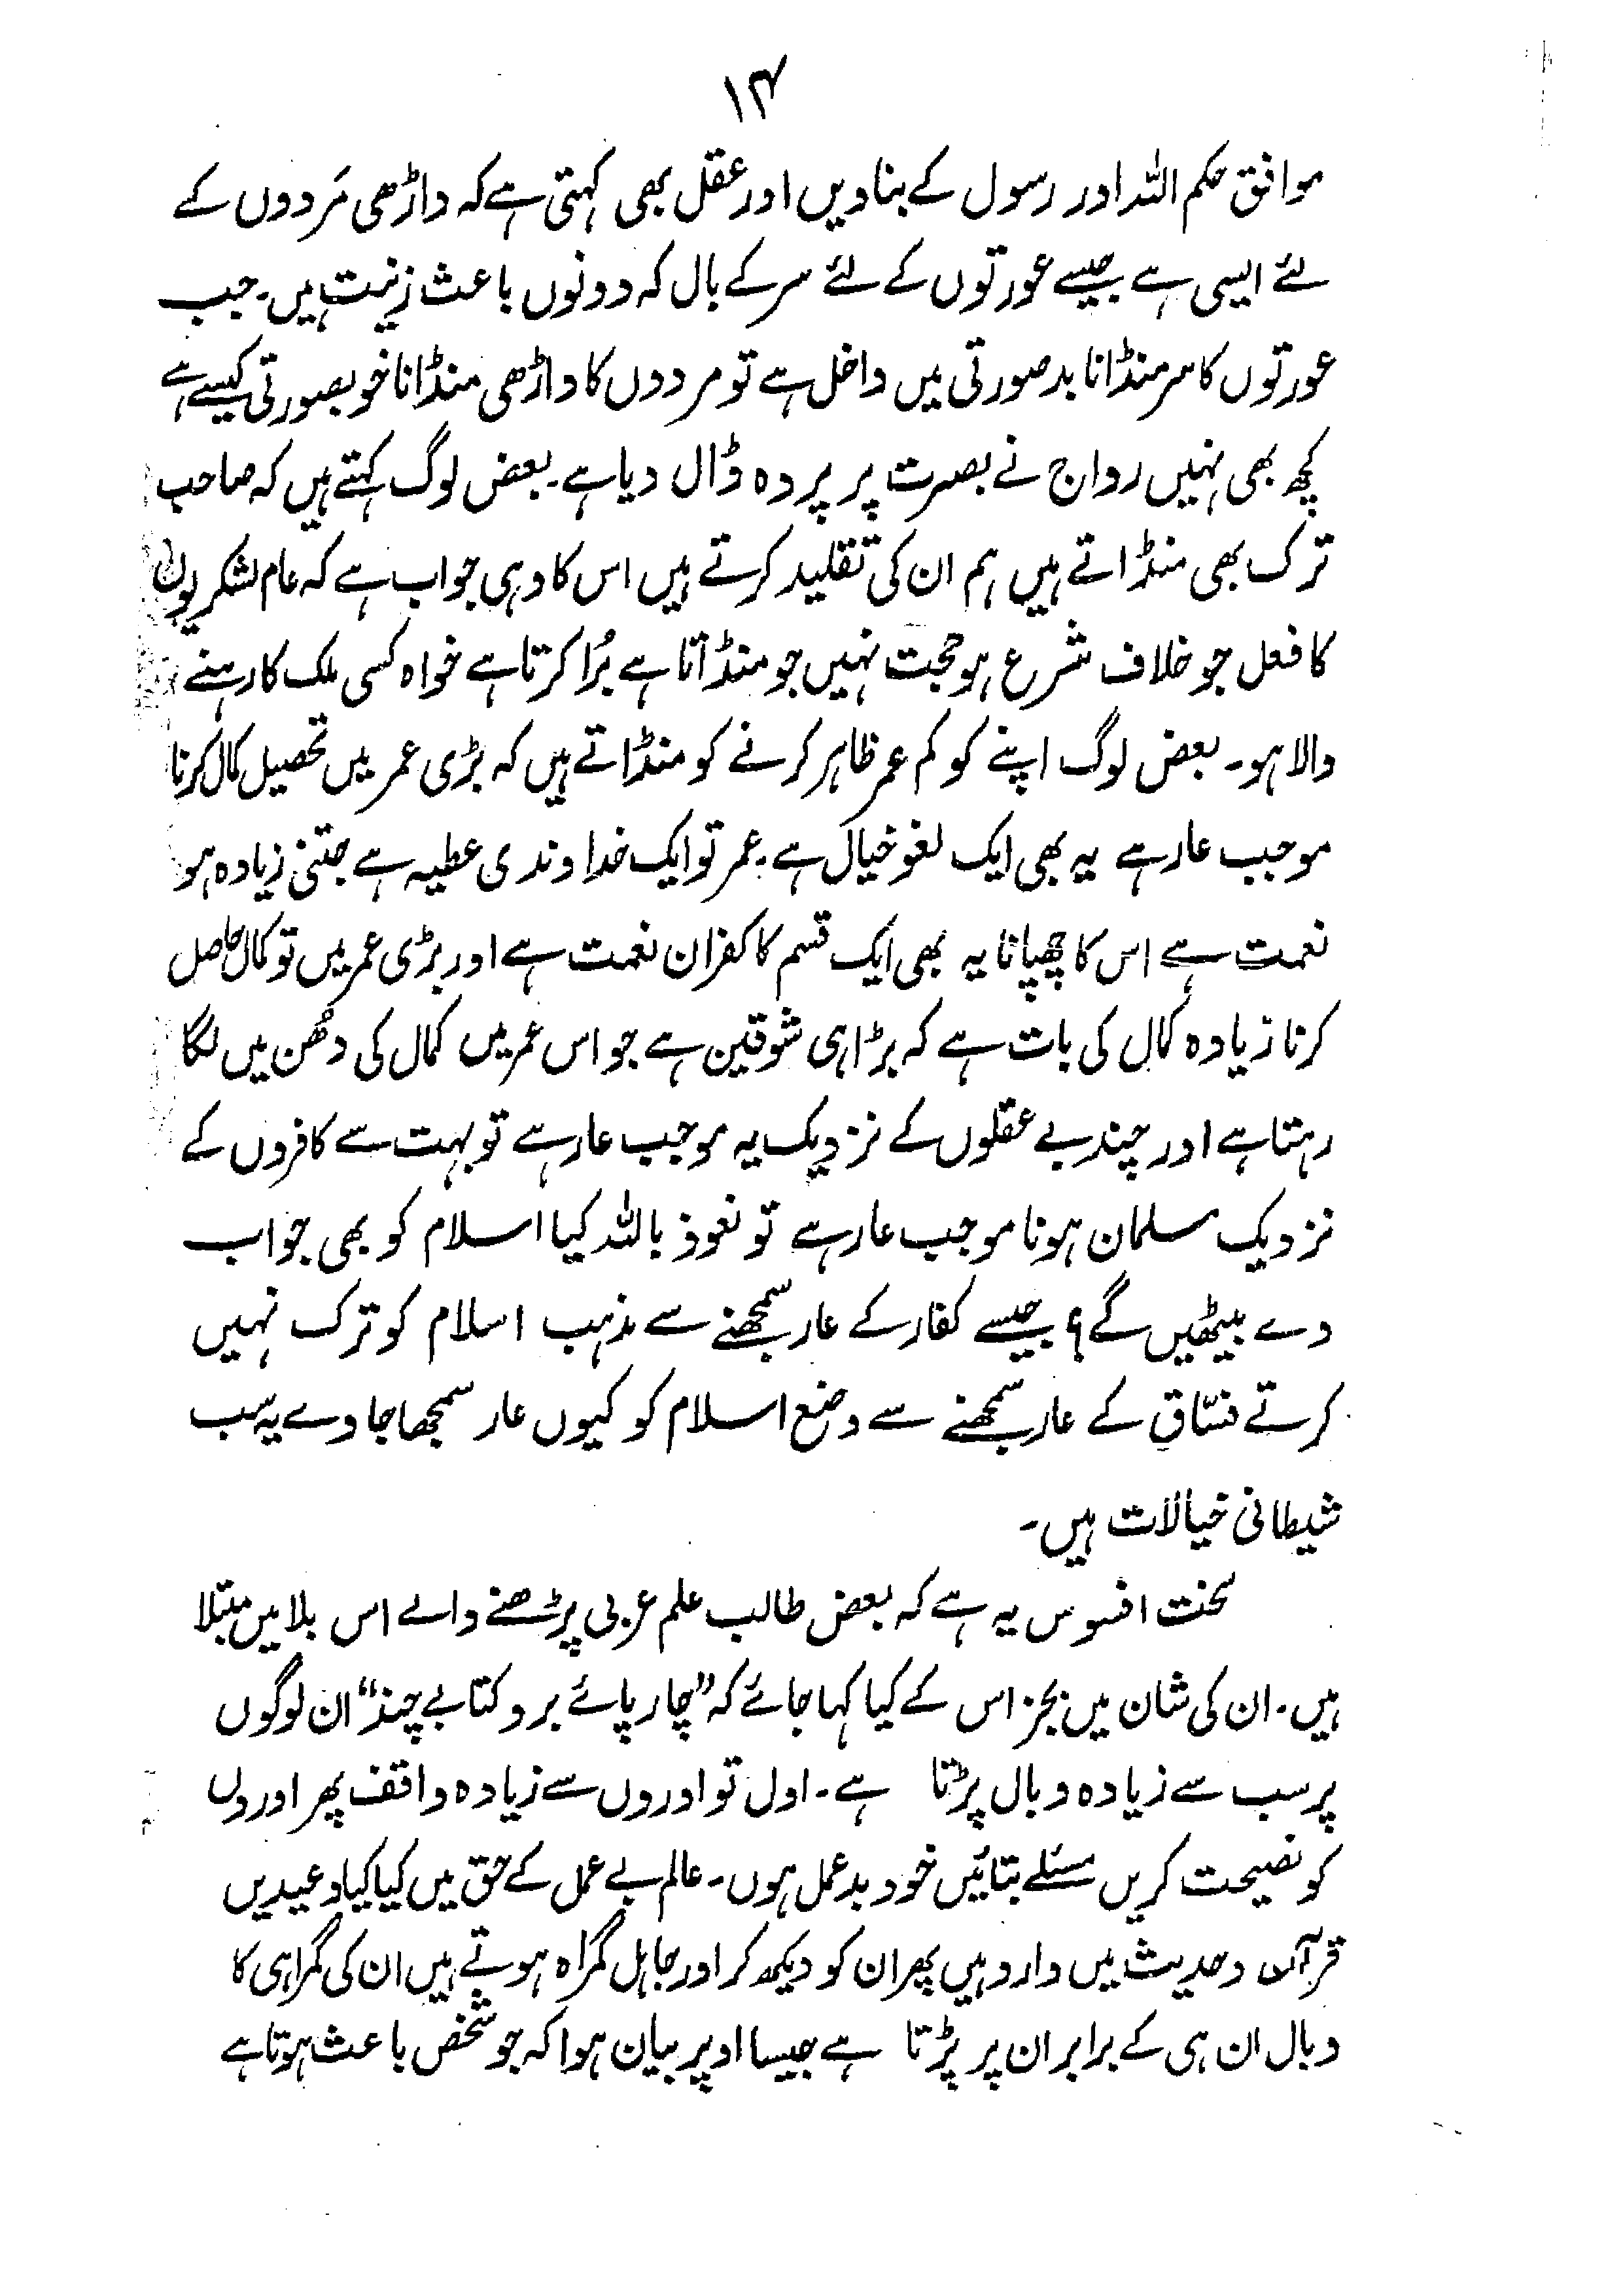 ۱۴
موافق حکم اللہ اور رسول کے بنادیں اور عقل بھی کہتی ہے کہ داڑھی مَردوں کے
لئے ایسی ہے جیسے عورتوں کے لئے سر کے بال کہ دونوں باعث زینت ہیں۔ جب
عورتوں کا سر منڈانا بد صورتی میں داخل ہے تو مردوں کا داڑھی منڈانا خوبصورتی کیسے ہے
کچھ بھی نہیں رواج نے بصرت پر پردہ ڈال دیا ہے۔ بعض لوگ کہتے ہیں کہ صاحب
ترک بھی منڈاتے ہیں ہم ان کی تقلید کرتے ہیں اس کا وہی جواب ہے کہ عام لشکریوں
کا فعل جو خلاف شرع ہو حجت نہیں جو منڈاتا ہے بُرا کرتا ہے خواہ کسی ملک کا رہنے
والا ہو۔ بعض لوگ اپنے کو کم عمر ظاہر کرنے کو منڈاتے ہیں کہ بڑی عمر میں تحصیل کمال کرنا
موجب عار ہے یہ بھی ایک لغو خیال ہے۔ عمر تو ایک خداوندی عطیہ ہے جتنی زیادہ ہو
نعمت ہے اس کا چھپانا یہ بھی ایک قسم کا کفران نعمت ہے اور بڑی عمر میں تو کمال حاصل
کرنا زیادہ کمال کی بات ہے کہ بڑا ہی شوقین ہے جو اس عمر میں کمال کی دُھن میں لگا
رہتا ہے اور چند بے عقلوں کے نزدیک یہ موجب عار ہے تو بہت سے کافروں کے
نزدیک مسلمان ہونا موجب عار ہے تو نعوذ باللہ کیا اسلام کو بھی جواب
دے بیٹھیں گے؟ جیسے کفار کے عار سمجھنے سے مذہب اسلام کو ترک نہیں
کرتے فسّاق کے عار سمجھنے سے وضع اسلام کو کیوں عار سمجھا جاوے یہ سب
شیطانی خیالات ہیں۔
سخت افسوس یہ ہے کہ بعض طالب علم عربی پڑھنے والے اس بلا میں مبتلا
ہیں۔ ان کی شان میں بجز اس کے کیا کہا جائے کہ ”چارپائے برو کتابے چند“ ان لوگوں
پر سب سے زیادہ وبال پڑتا ہے۔ اول تو اوروں سے زیادہ واقف پھر اوروں
کو نصیحت کریں مسئلے بتائیں خود بدعمل ہوں۔ عالم بے عمل کے حق میں کیا کیا وعیدیں
قرآن وحدیث میں وارد ہیں پھر ان کو دیکھ کر اور جاہل گمراہ ہوتے ہیں ان کی گمراہی کا
وبال ان ہی کے برابر ان پر پڑتا ہے جیسا اوپر بیان ہوا کہ جو شخص باعث ہوتا ہے